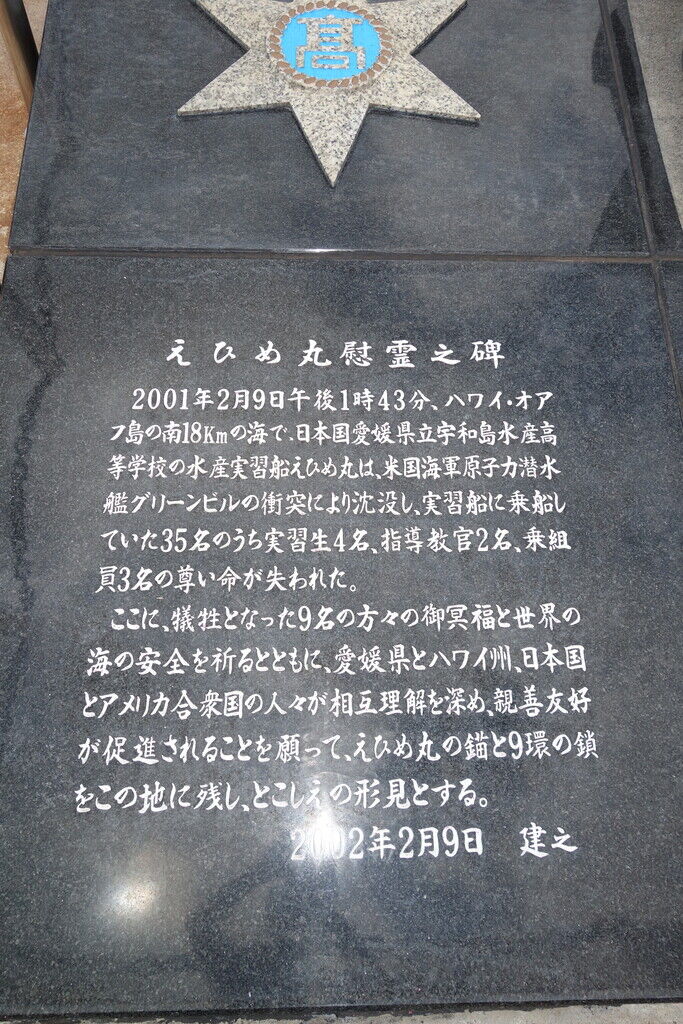 高
えひめ丸慰霊之碑
2001年2月9日午後1時43分、ハワイ・オア
フ島の南18Kmの海で、日本国愛媛県立宇和島水産高
等学校の水産実習船えひめ丸は、米国海軍原子力潜水
艦グリーンビルの衝突により沈没し、実習船に乗船し
ていた35名のうち実習生4名、指導教官2名、乗組
員3名の尊い命が失われた。
ここに、犠牲となった9名の方々の御冥福と世界の
海の安全を祈るとともに、愛媛県とハワイ州、日本国
とアメリカ合衆国の人々が相互理解を深め、親善友好
が促進されることを願って、えひめ丸の錨と9環の鎖
をこの地に残し、とこしえの形見とする。
2002年2月9日 建之